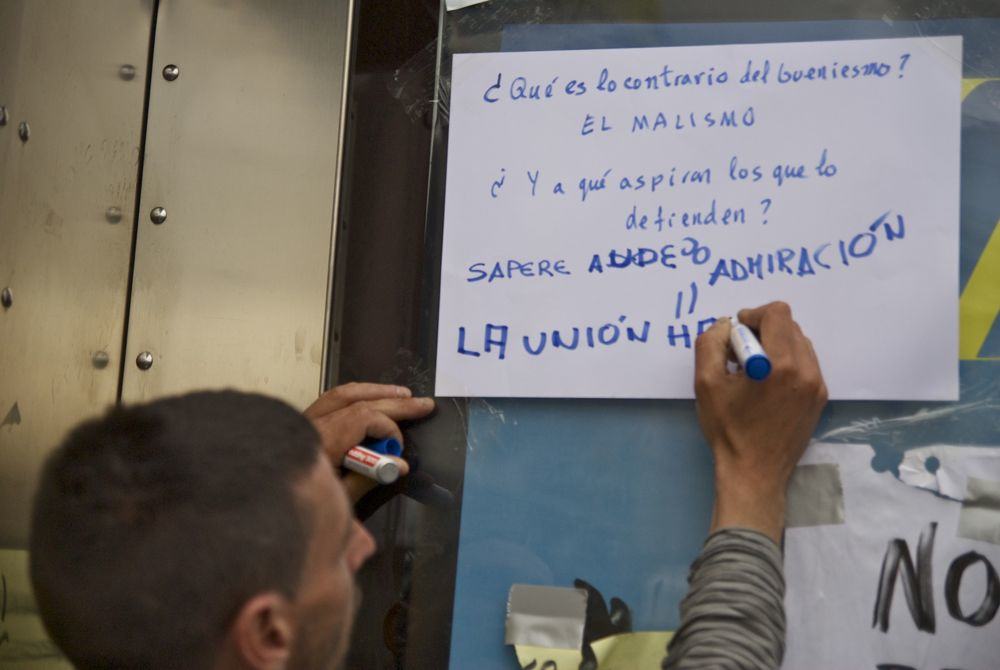 ¿Qué es lo contrario del bueniesmo?
EL MALISMO
¿Y a qué aspiran los que lo
defienden?
SAPERE ADMIRACIÓN
LA UNIÓN
NO